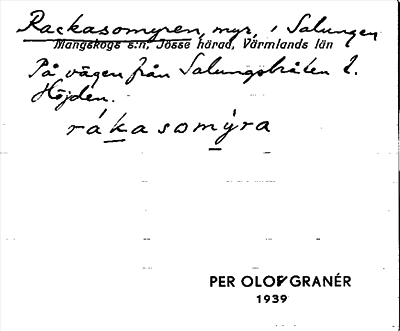 Rackasomyren, myr, i Salungen
Mangskogs s:n, Jösse härad, Värmlands län
På vägen från Salungsbråten t.
Höjden.
rákasomýra
PER OLOF GRANÉR
1939